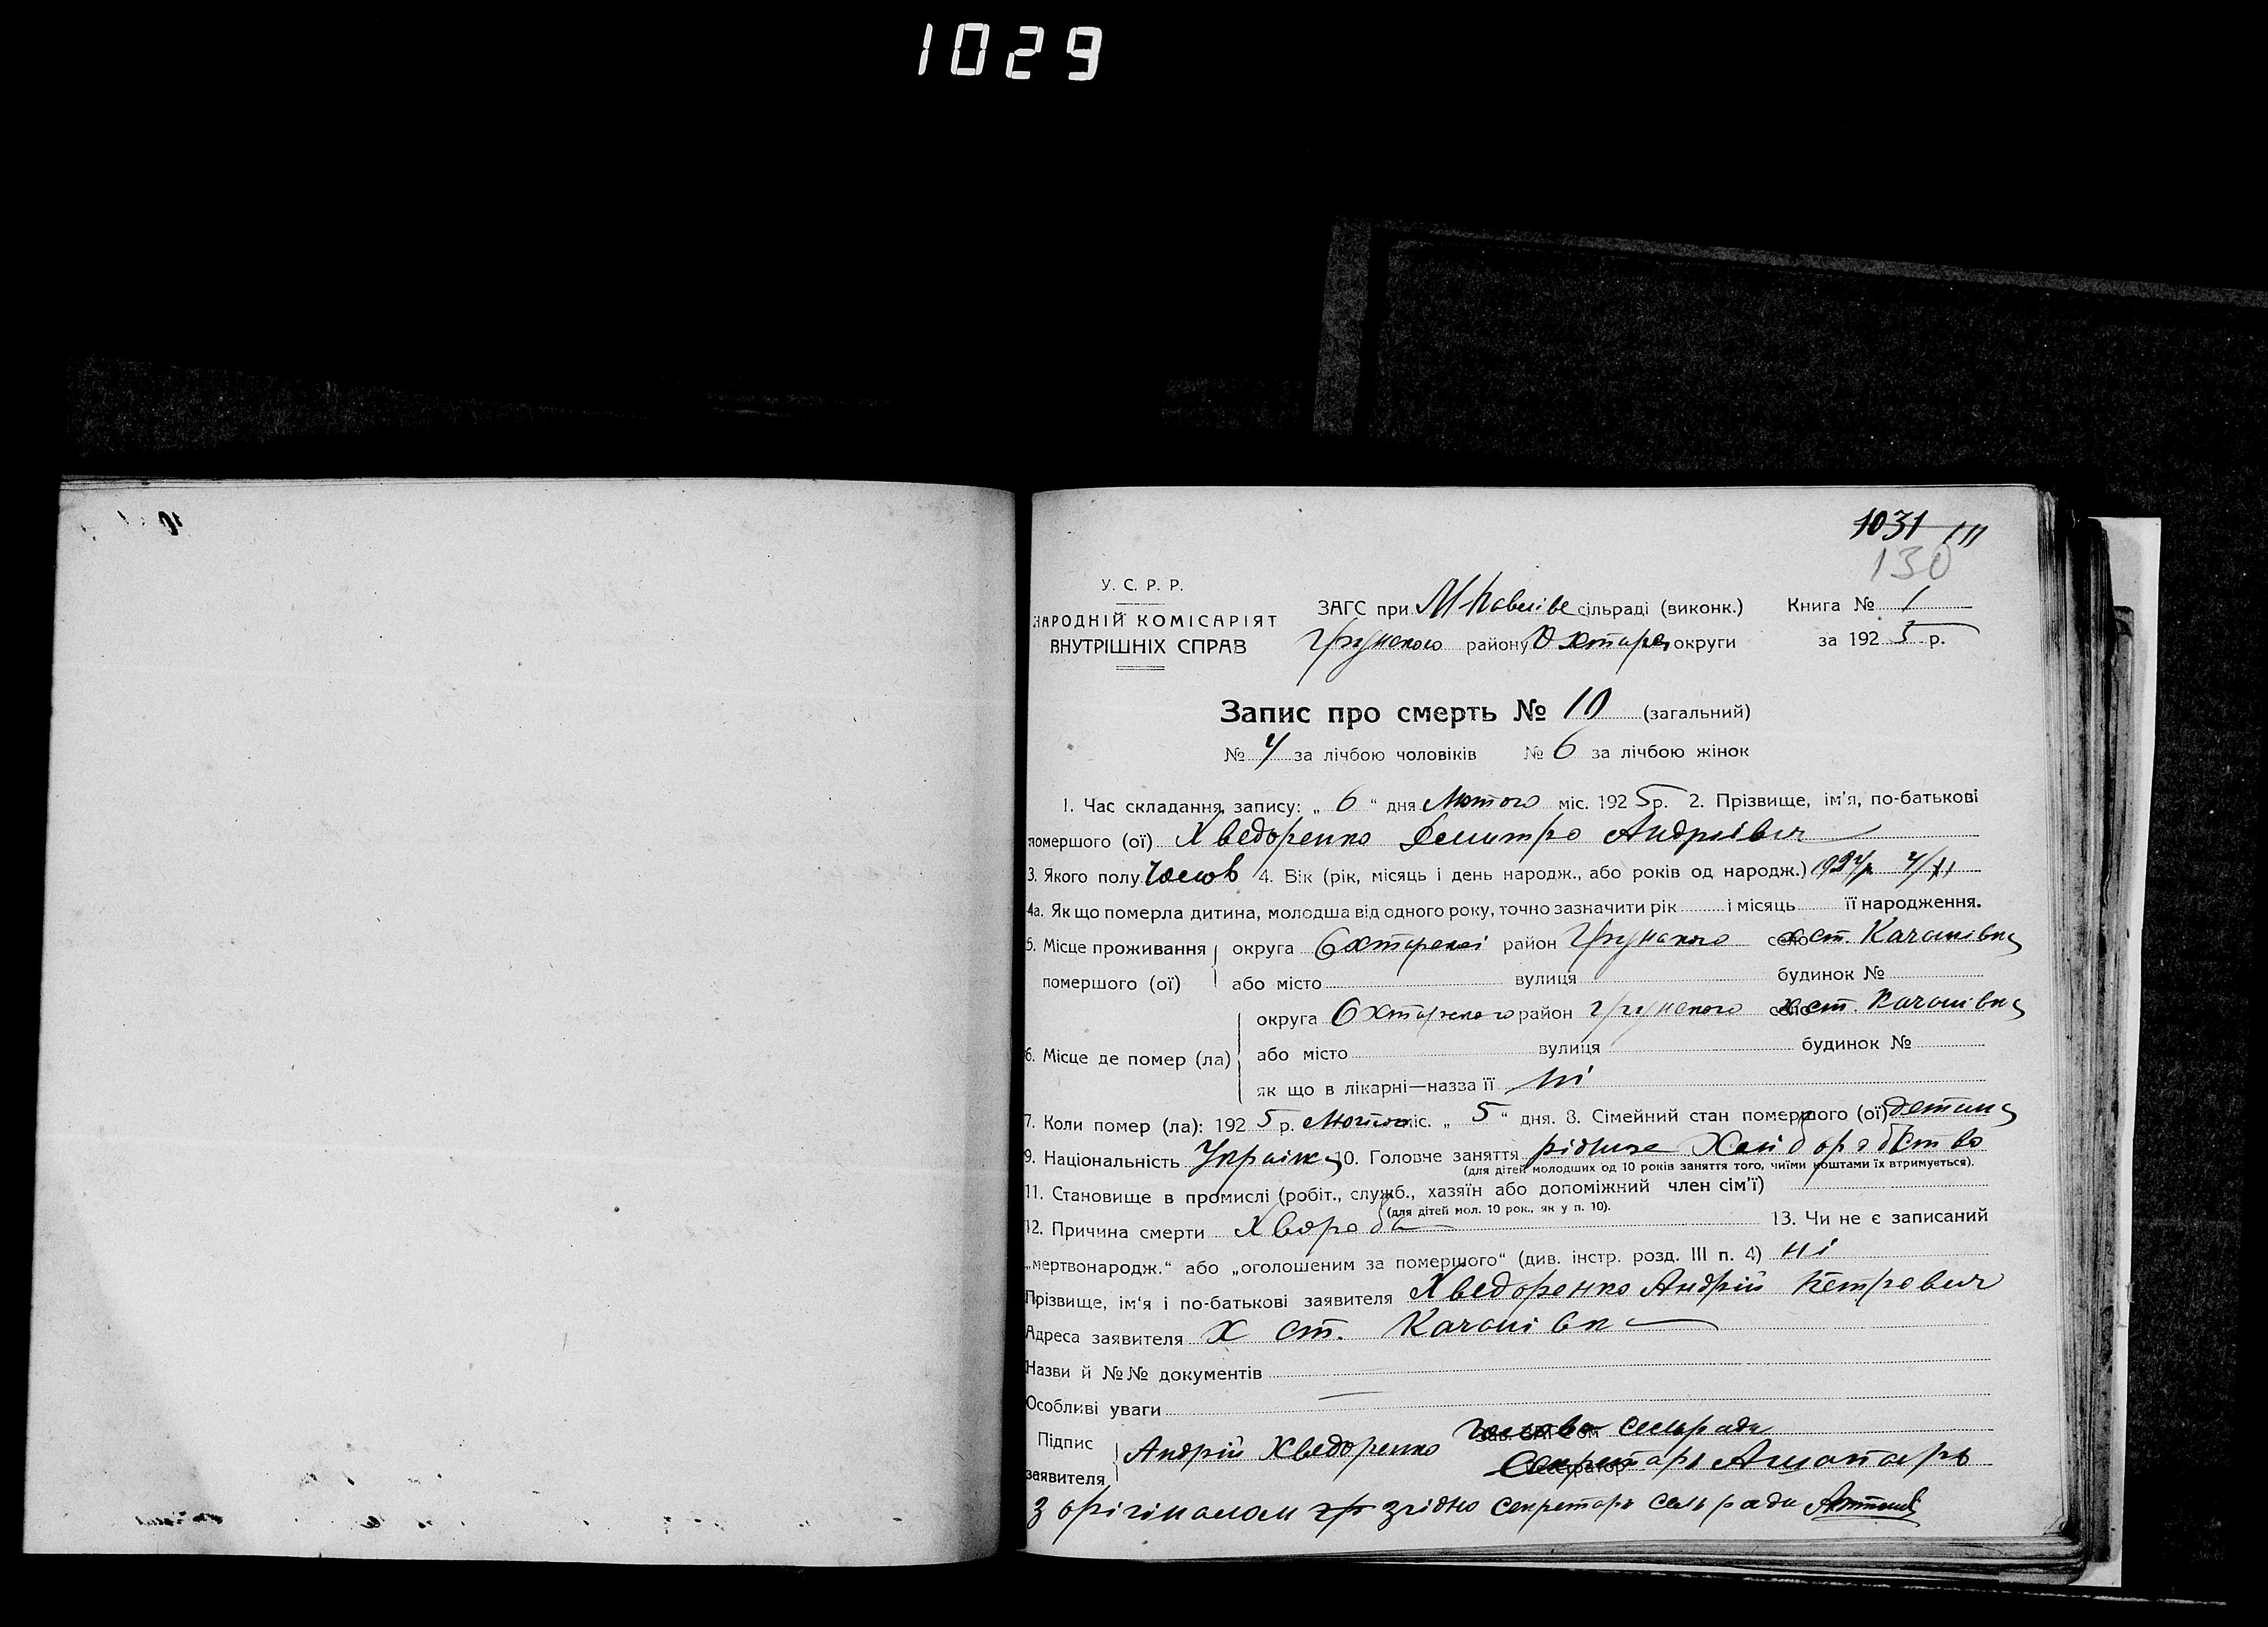 1029
1031 111
130
У. С. Р. Р.
НАРОДНІЙ КОМІСАРІЯТ
ВНУТРІШНІХ СПРАВ
ЗАГС при М Павлівс сільраді (виконк.)
Грунского району Охтирс округи
Книга № 1
за 1925 р.
Запис про смерть № 10 (загальний)
№ 4 за лічбою чоловіків № 6 за лічбою жінок
1. Час складання запису: „ 6 “ дня Лютого міс. 1925р. 2. Прізвище, ім'я, по-батькові
помершого (ої) Хведоренко Демитро Андриівич
3. Якого полу Чолов 4. Вік (рік, місяць і день народж., або років од народж.) 1924р 4/XI
4а. Як що померла дитина, молодша від одного року, точно зазначити рік і місяць її народження.
5. Місце проживання округа Охтирскої район Грунского хст. Качанівка
помершого (ої) або місто вулиця будинок №
округа Охтирского район Грунского хст. Качанівка
6. Місце де помер (ла) або місто вулиця будинок №
як що в лікарні—назва її Ні
7. Коли помер (ла): 1925 р. Лютого міс. „ 5 “ дня. 8. Сімейний стан помершого (ої) детина
9. Національність Україн 10. Головче заняття рідних Хлиборобство
(для дітей молодших од 10 років заняття того, чиїми коштами їх втримується).
11. Становище в промислі (робіт., служб., хазяїн або допоміжний член сім'ї)
(для дітей мол. 10 рок., як у п. 10).
12. Причина смерти Хвороба 13. Чи не є записаний
„мертвонародж.“ або „оголошеним за помершого“ (див. інстр. розд. III п. 4) ні
Прізвище, ім'я і по-батькові заявителя Хведоренко Андрій Петрович
Адреса заявителя Х ст. Качанівк
Назви й №№ документів
Особливі уваги
Підпис
заявителя
Андрій Хведоренко
Голова Сельради
Секретарь
З орігіналом згідно секретарь сельради